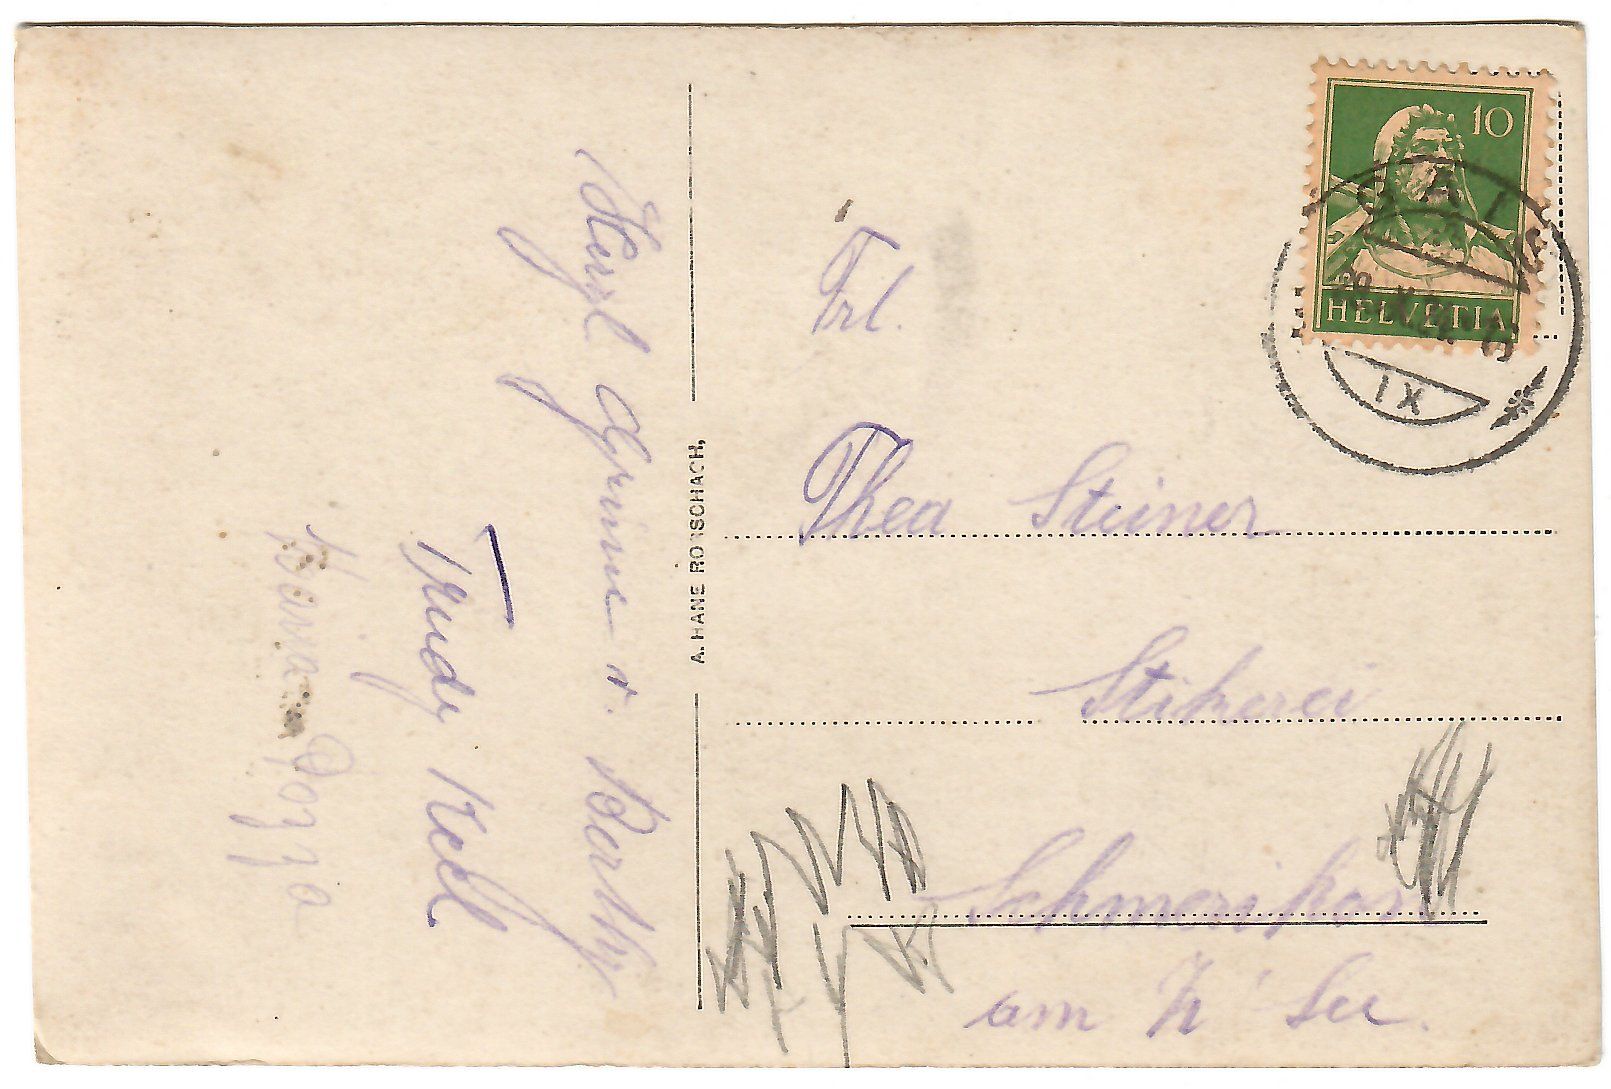 Herzl. Grüsse v. Berthy
Trudy Keel
Maria Pozzo
A. HANE RORSCHACH,
10
HELVETIA
IX
Frl.
Thea Steiner
Stikerei
Schmerikon
am Z' See.